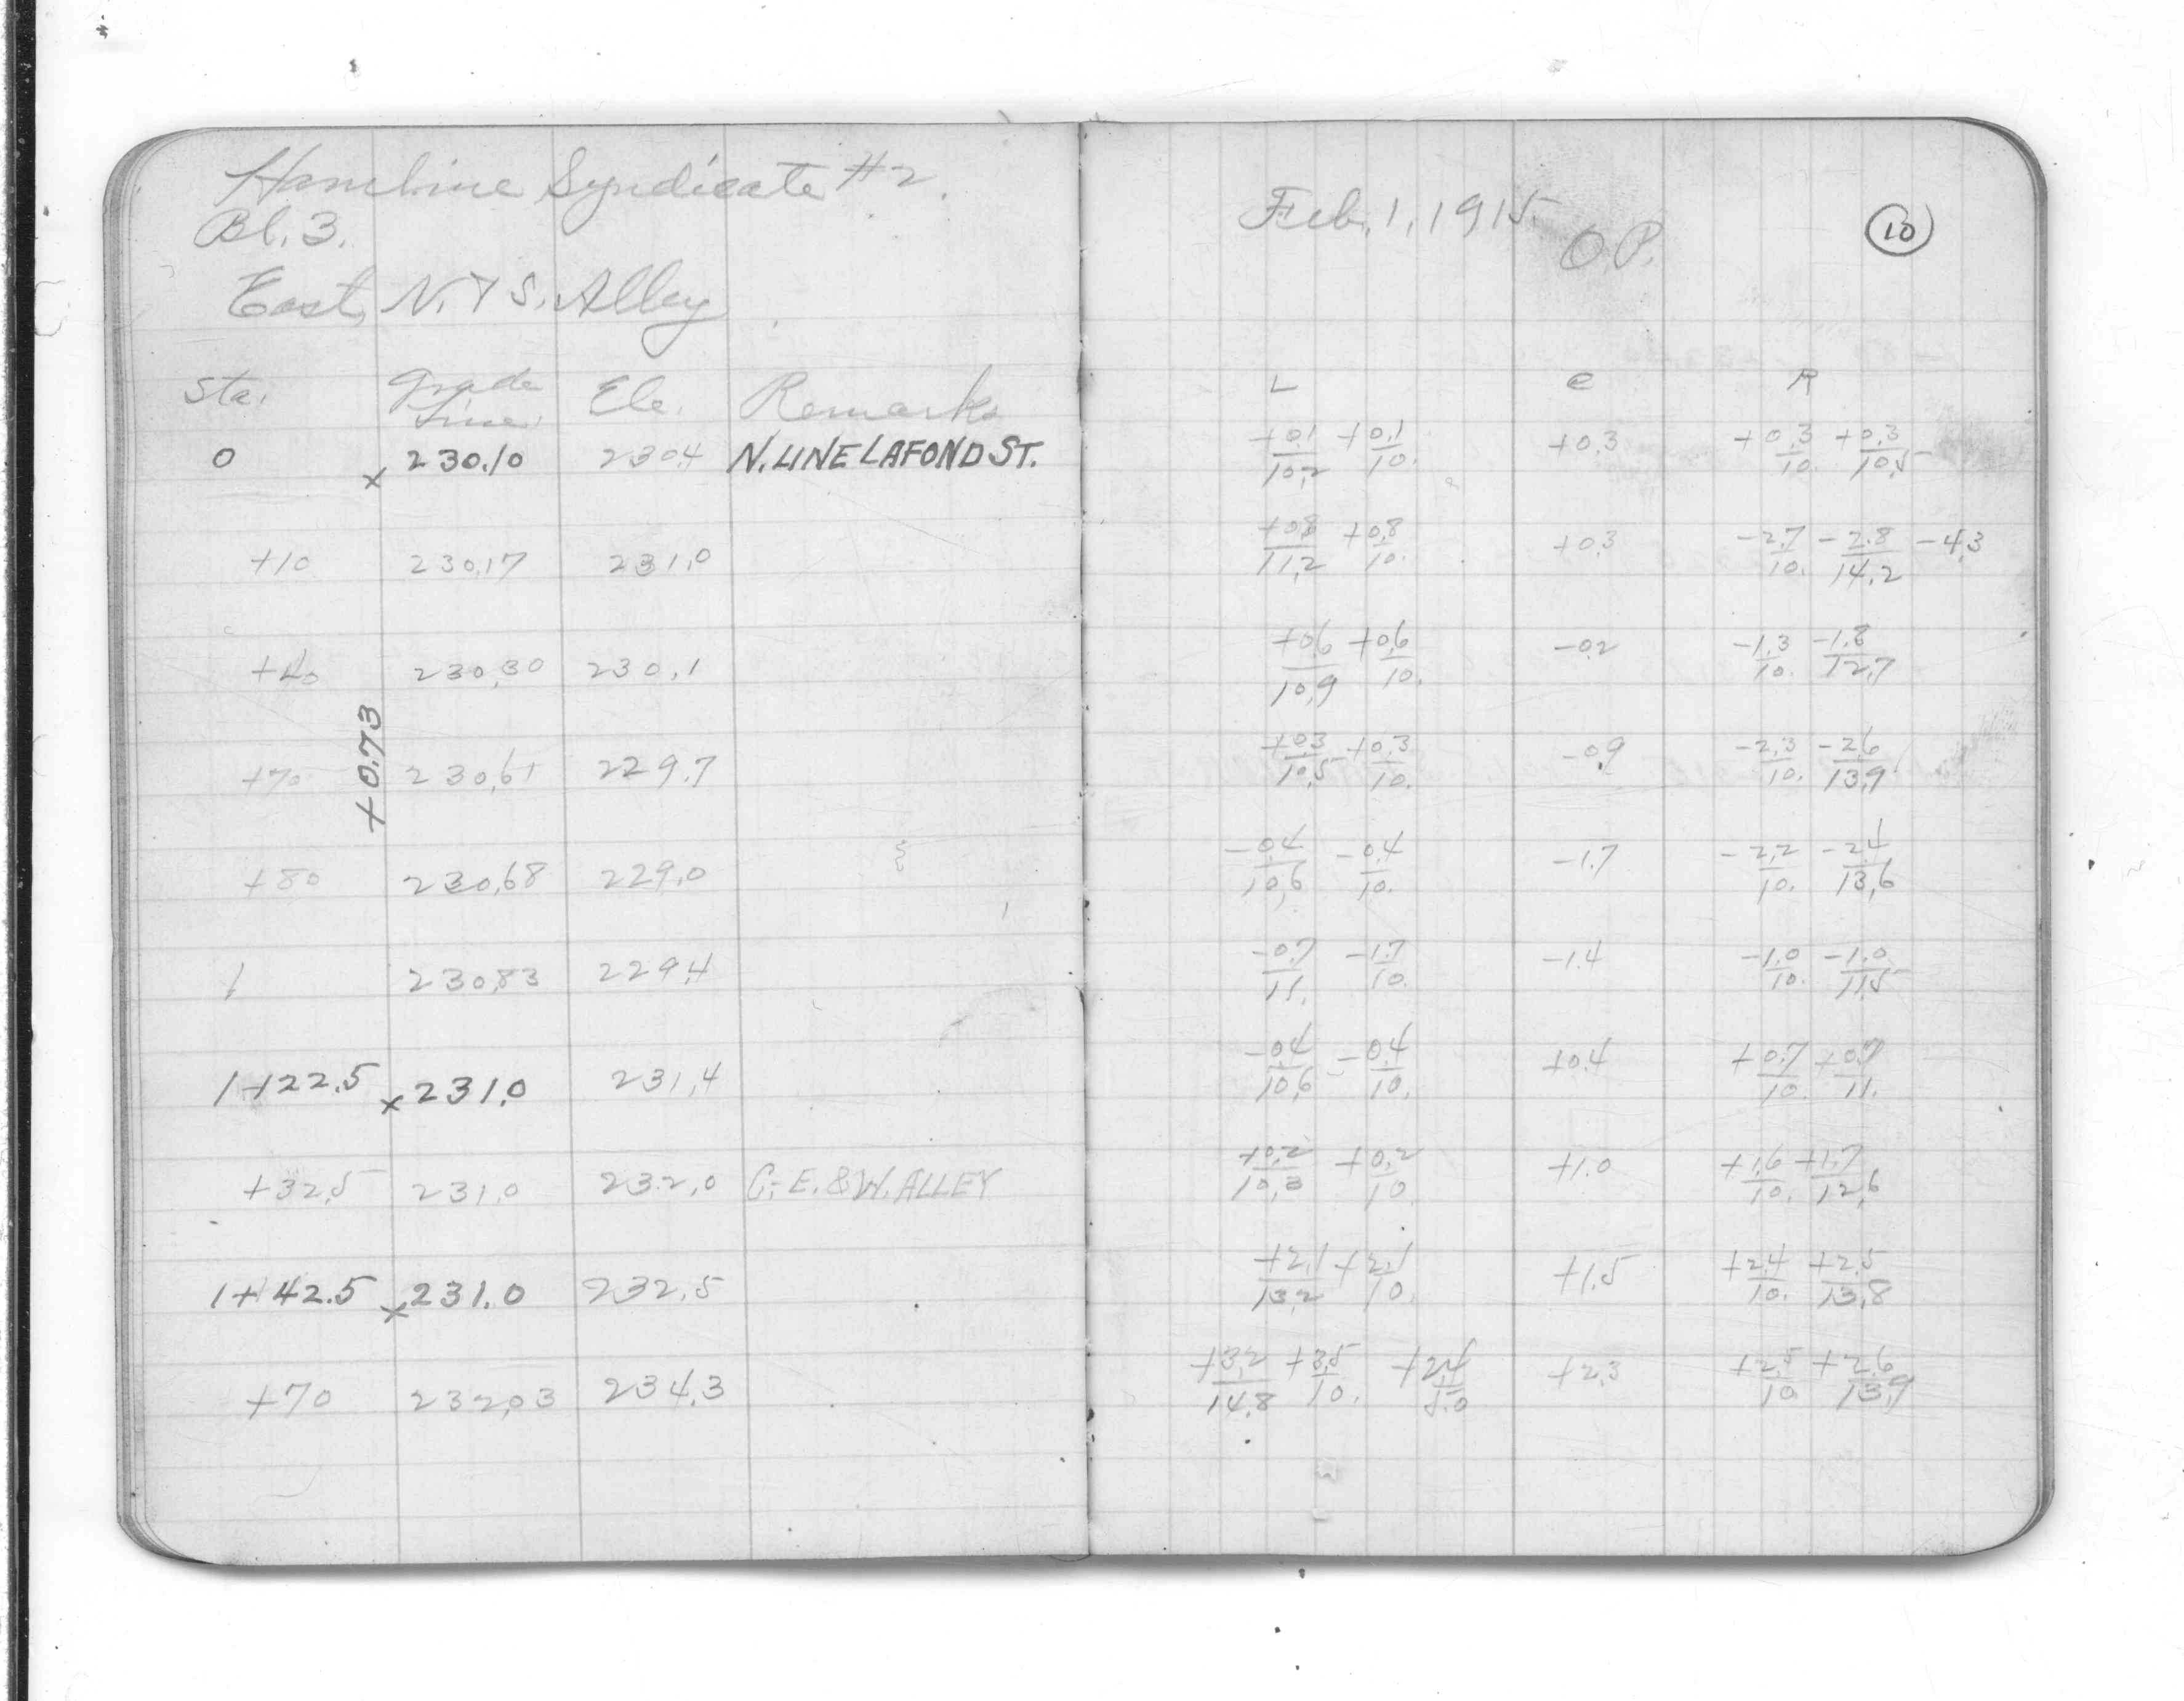 Hamline Syndicate #2.
Bl. 3.
East, N. & S. Alley
Sta. Grade Line Ele. Remarks
0 x 230.10 230.4 N. LINE LAFOND ST.
+10 230.17 231.0
+40 230.30 230.1
+0.73
+70 230.61 229.7
+80 230.68 229.0
1 230.83 229.4
1+22.5 x 231.0 231.4
+32.5 231.0 232.0 C.-E. & W. ALLEY
1+42.5 x 231.0 232.5
+70 232.03 234.3
Feb. 1, 1915
O.P.
10
L C R
+0.1/10.2 +0.1/10. +0.3 +0.3/10. +0.3/10.5
+0.8/11.2 +0.8/10. +0.3 -2.7/10. -2.8/14.2 -4.3
+0.6/10.9 +0.6/10. -0.2 -1.3/10. -1.8/12.7
+0.3/10.5 +0.3/10. -0.9 -2.3/10. -2.6/13.9
-0.4/10.6 -0.4/10. -1.7 -2.2/10. -2.4/13.6
-0.7/11. -1.7/10. -1.4 -1.0/10. -1.0/11.5
-0.4/10.6 -0.4/10. +0.4 +0.7/10. +0.7/11.
+0.2/10.3 +0.2/10. +1.0 +1.6/10. +1.7/12.6
+2.1/13.2 +2.1/10. +1.5 +2.4/10. +2.5/13.8
+3.2/14.8 +3.5/10. +2.4/5.0 +2.3 +2.5/10 +2.6/13.9